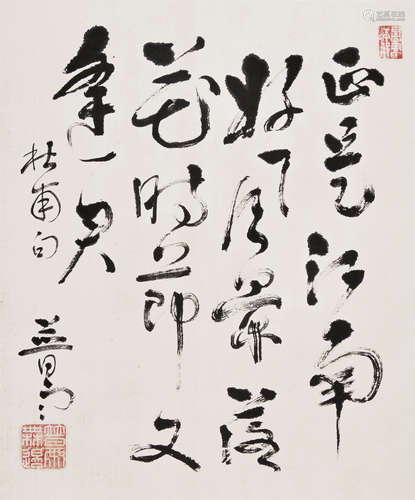 正是江南
好风景落
花时节又
逢君
杜甫句